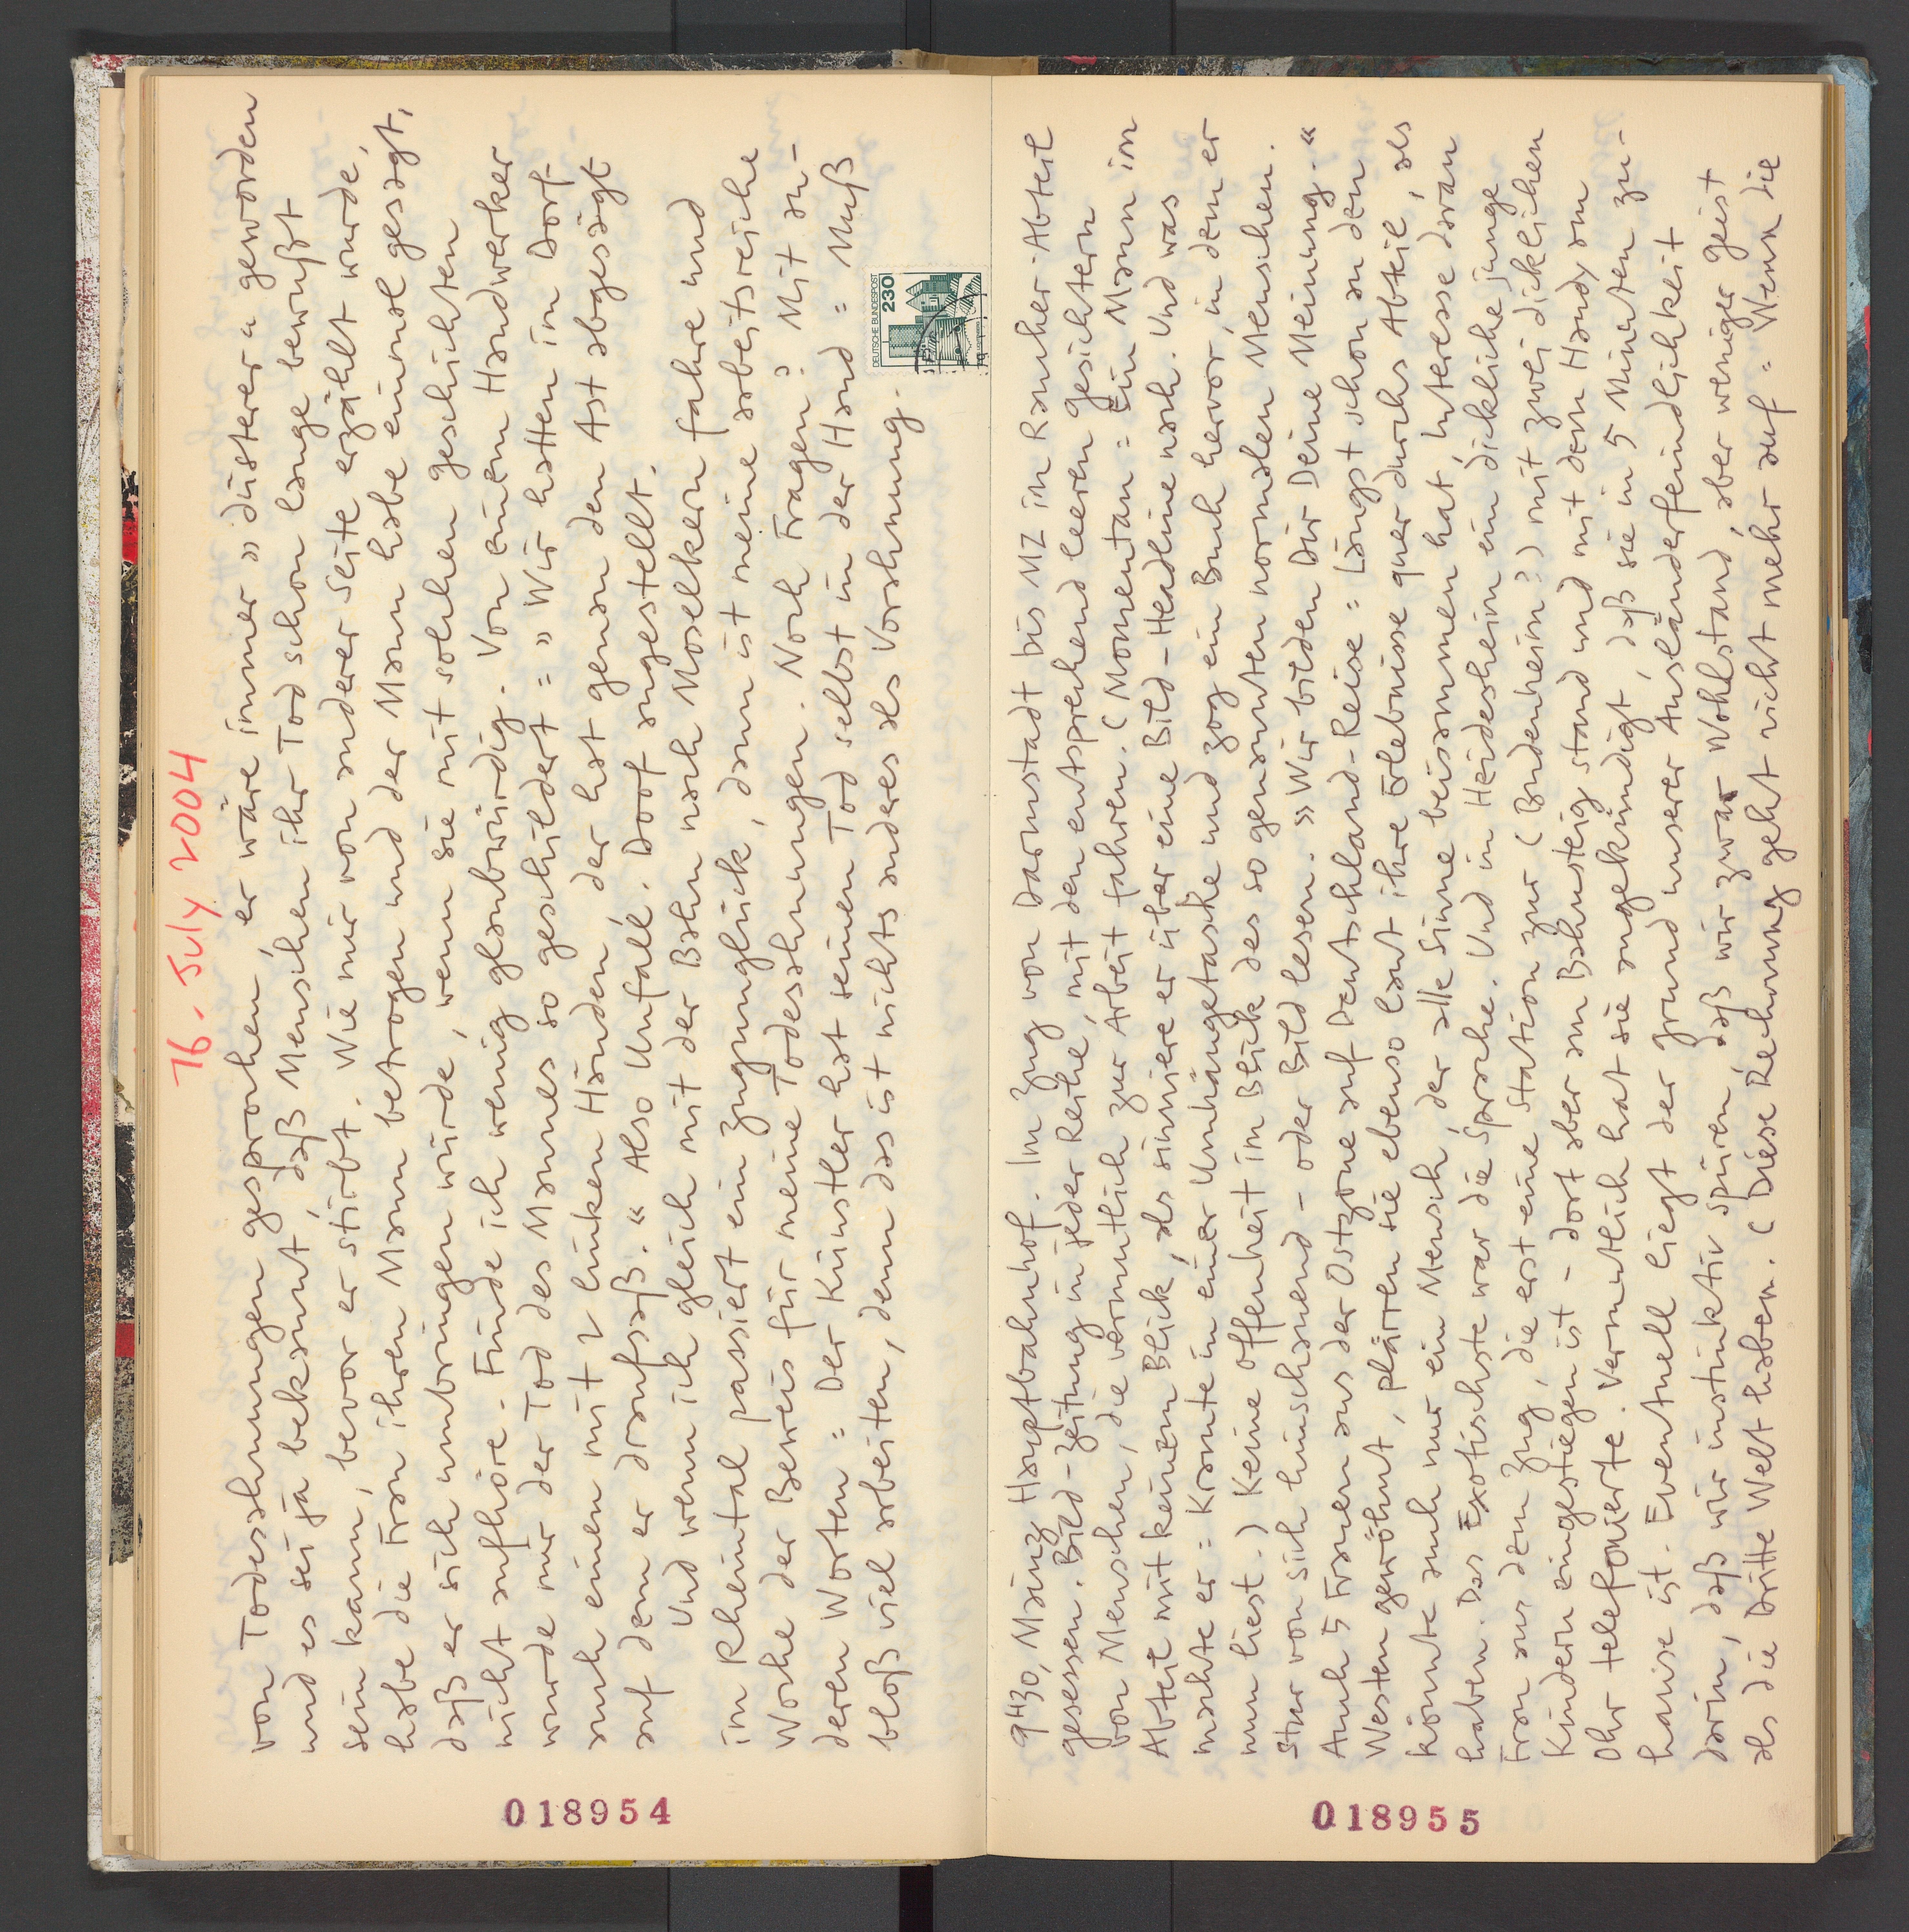 16. July 2004
von Todesahnungen gesprochen, er wäre immer » düsterer « geworden
und es sei ja bekannt, daß Menschen ihr Tod schon lange bewußt
sein kann, bevor er stirbt. Wie mir von anderer Seite erzählt wurde,
habe die Frau ihren Mann betrogen und der Mann habe einmal gesagt,
daß er sich umbringen würde, wenn sie mit solchen geschichten
nicht aufhöre. Finde ich wenig glaubwürdig. Von einem Handwerker
wurde mir der Tod des Mannes so geschildert = » Wir hatten im Dorf
auch einen mit 2 linken Händen, der hat genau den Ast abgesägt
auf dem er draufsaß. « Also Unfall. Doof angestellt.
Und wenn ich gleich mit der Bahn nach Moselkern fahre und
im Rheintal passiert ein Zugunglück, dann ist meine arbeitsreiche
Woche der Beweis für meine Todesahnungen. Noch Fragen? Mit an-
deren Worten = Der Künstler hat seinen Tod selbst in der Hand = Muß
bloß viel arbeiten, denn das ist nichts anderes als Vorahnung.
DEUTSCHE BUNDESPOST
230
018954
9H30, Mainz Hauptbahnhof. Im Zug von Darmstadt bis MZ im Raucher-Abteil
gesessen. Bild-Zeitung in jeder Reihe, mit den entsprechend leeren gesichtern
von Menschen, die vermutlich zur Arbeit fahren. (Momentan = Ein Mann im
Abteil mit keinem Blick, als sinniere er über eine Bild-Headline nach. Und was
machte er = Kramte in einer Umhängetasche und zog ein Buch hervor, in dem er
nun liest.) Keine Offenheit im Blick des so genannten normalen Menschen.
Stur von sich hinschauend - oder Bild lesen. » Wir bilden Dir Deine Meinung. «
Auch 5 Frauen aus der Ostzone auf Deutschland-Reise = Längst schon an den
Westen gewöhnt, plärren sie ebenso laut ihre Erlebnisse quer durchs Abteil, als
könnte auch nur ein Mensch, der alle Sinne beisammen hat, Interesse daran
haben. Das Exotischste war die Sprache. Und in Heidesheim ein dickliche junge
Frau aus dem Zug, die erst eine Station zur (Budenheim?) mit zwei dicklichen
Kindern eingestiegen ist - dort aber am Bahnsteig stand und mit dem Handy am
Ohr telefonierte. Vermutlich hat sie angekündigt, daß sie in 5 Minuten zu-
hause ist. Eventuell liegt der grund unserer Ausländerfeindlichkeit
darin, daß wir instinktiv spüren, daß wir zwar Wohlstand, aber weniger geist
als die Dritte Welt haben. (Diese Rechnung geht nicht mehr auf = Wenn die
018955